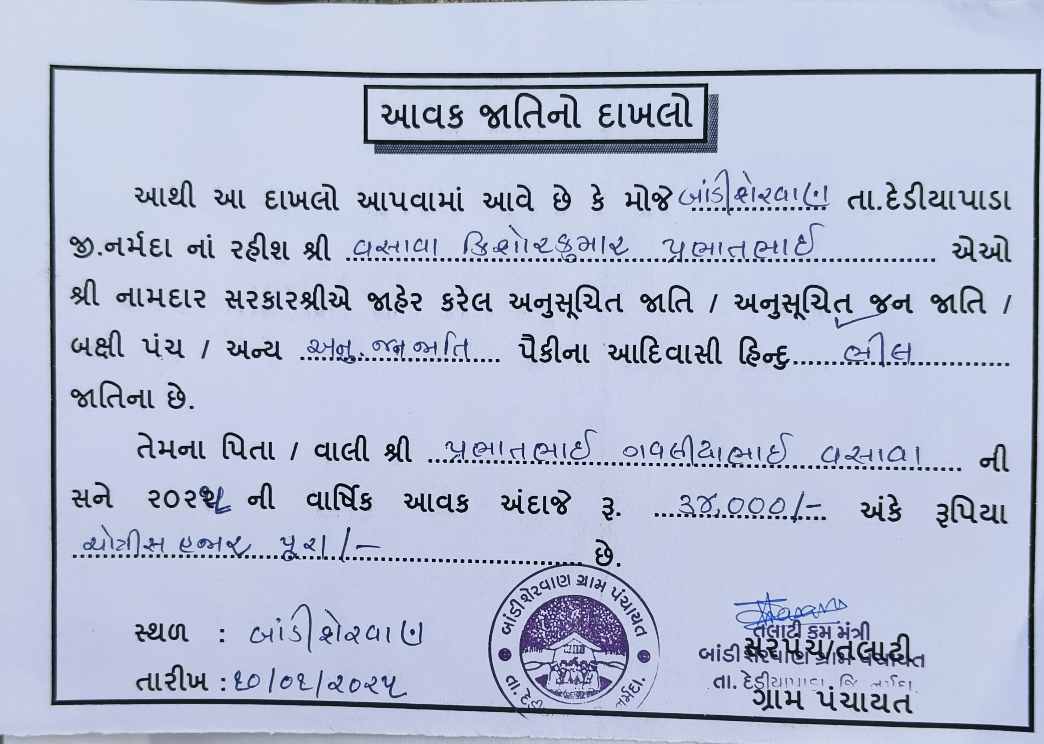 આવક જાતિનો દાખલો
આથી આ દાખલો આપવામાં આવે છે કે મોજે બાંડીશેરવાણ તા.દેડીયાપાડા
જી.નર્મદા નાં રહીશ શ્રી વસાવા કિશોરકુમાર પ્રભાતભાઈ એઓ
શ્રી નામદાર સરકારશ્રીએ જાહેર કરેલ અનુસૂચિત જાતિ / અનુસૂચિત જન જાતિ /
બક્ષી પંચ / અન્ય અનુ. જનજાતિ પૈકીના આદિવાસી હિન્દુ ભીલ
જાતિના છે.
તેમના પિતા / વાલી શ્રી પ્રભાતભાઈ વસાવા ની
સને ની વાર્ષિક આવક અંદાજે રૂ. ૩૪,૦૦૦/- અંકે રૂપિયા
ચોત્રીસ હજાર પૂરા/- છે.
સ્થળ : બાંડીશેરવાણ
તારીખ : ૨૦૨૫
બાંડીશેરવાણ ગ્રામ પંચાયત
તા. દેડી નર્મદા.
તલાટી કમ મંત્રી
સરપંચ/તલાટી
બાંડી શેરવાણ ગ્રામ પંચાયત
તા. દેડીયાપાડા જિ. નર્મદા
ગ્રામ પંચાયત